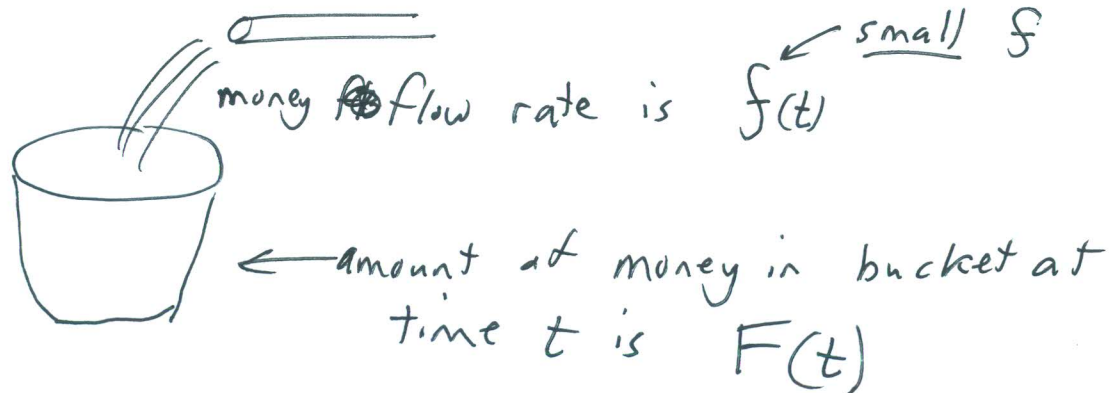 small f
money flow rate is f(t)
amount of money in bucket at
time t is F(t)